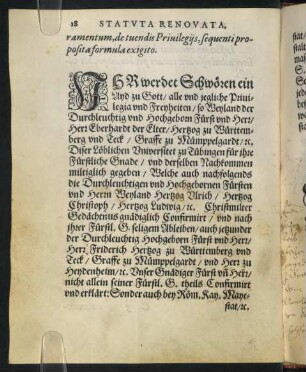 28 STATVTA RENOVATA,
ramentum, de tuendis Priuilegijs, sequenti pro-
posita formula exigito.
IHR werdet Schwören ein
Ayd zu Gott / alle vnd jegliche Priui-
legia vnd Freyheiten / so Weyland der
Durchleuchtig vnd Hochgeborn Fürst vnd Herr /
Herr Eberhardt der Elter / Hertzog zu Württem-
berg vnd Teck / Graffe zu Mümppelgardt / ꝛc.
Diser Löblichen Vniuersitet zu Tübingen für jhre
Fürstliche Gnade / vnd derselben Nachkommen
miltiglich gegeben / Welche auch nachfolgends
die Durchleuchtigen vnd Hochgebornen Fürsten
vnd Herrn Weyland Hertzog Vlrich / Hertzog
Christoph / Hertzog Ludwig / ꝛc. Christmilter
Gedächtnus gnädiglich Confirmirt / vnd nach
jhrer Fürstl. G. seligem Ableiben / auch jetzunder
der Durchleuchtig Hochgeborn Fürst vnd Herr /
Herr Friderich Hertzog zu Württemberg vnd
Teck / Graffe zu Mümppelgardt / vnd Herr zu
Heydenheim / ꝛc. Vnser Gnädiger Fürst vñ Herr /
nicht allein seiner Fürstl. G. theils Confirmirt
vnd erklärt: Sonder auch bey Röm. Kay. Maye-
stat / ꝛc.